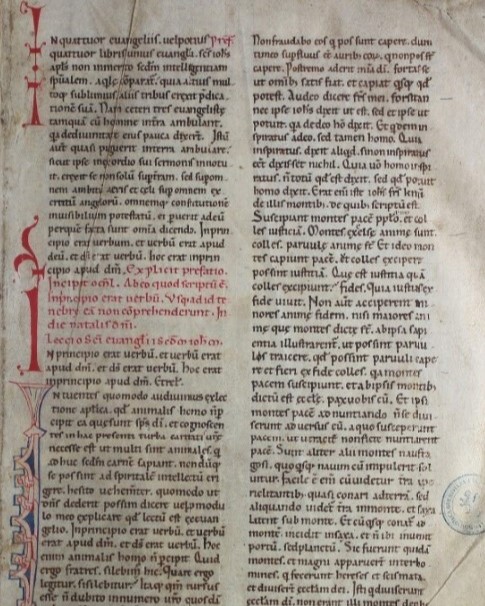 In quattuor euangeliis. uel potius Pref.
quattuor libris unius euanglii. scs ioħs
apłs non inmerito scdm intellegentiam
spũalem. aqłe cõparatˀ. quia altius mul
toq; sublimius aliis tribus erexit p̃dica
tionē suã. Nam ceteri tres euangelistę
tamquã cũ homine intra ambulant.
qa de diuinitate eiˀ pauca dixert̃. Istũ
aut̃ quasi piguerit interra ambulare.
sicut ipso in exordio sui sermonis innotu
it. erexit se non solũ sup terram. sed supom
nem ambitũ aeris et celi supomnem ex
ercitũ anglorũ. omnemq; constitutionē
inuisibilium potestatũ. et puenit adeũ
perquē facta sunt omnia dicendo. Inprin
cipio erat uerbum. et uerbũ erat apud
deũ. et dš erat uerbũ. hoc erat inprin
cipio apud dm̃. Explicit prefatio.
Incipit omł. Ab eo quod scriptũ ē.
Inprincipio erat uerbũ. Usq; ad id te
nebrę eũ non cõprehenderunt. In
die natalis dñi.
Lectio scī euangłii scdm ioħm.
In principio erat uerbũ. et uerbũ erat
apud dm̃. et dš erat uerbũ. hoc erat
inprincipio apud dm̃. Et reł.
Intuentes quomodo audiuimus exlec
tione aplica. qd animalis homo ñp
cipit ea quę sunt sp̃s dī. et cognoscen
tes in hac presenti turba caritatis urę̃
necesse est ut multi sint animales. q̃
adhuc scdm carnē sapiant. nendũq;
se possint ad spiritale intellectũ eri
gere. hesito uehementer. quomodo ut
dñs dederit possim dicere. uel pro modu
lo meo explicare qd lectũ est exeuan
gelio. Inprincipio erat uerbũ. et uerbũ
erat apud dm̃. et dš erat uerbũ. Hoc
enim animalis homo ñ pcipit. Quid
ergo fratres. silebimˀ hinc. Quare ergo
legitur. si silebitur. Itaq; qm̃ rursus
esse ñ dubito innumero uro quosdã
Non fraudabo eos q̃ possunt capere. dum
timeo supfluus eē auribˀ eoꝝ. qui non posst̃
capere. Postremo aderit mĩa dī. fortasse
ut omnibˀ satis fiat. et capiat qsq; qd
potest. Audeo dicere frs mei. forsitan
nec ipse ioħs dixit ut est. sed et ipse ut
potuit. qa de deo hõ dixit. Et q̃dem in
spiratus adeo. sed tamen homo. Quia
inspiratus. dixit aliqd. si non inspiratus
eēt dixisset nichil. Quia uō homo inspi
ratus. ñ totũ qd est dixit. sed qd potuit
homo dixit. Erat em̃ iste ioħs frs km̃i
de illis montibˀ. de quibˀ scriptũ est.
Suscipiant montes pacē pplo. et col
les iusticiã. Montes excelsę animę sunt.
colles. paruulę animę st̃. Et ideo mon
tes capiunt pacē. et colles excipere
possint iustitiã. Que est iustitia quã
colles excipiunt? fides. Quia iustus ex
fide uiuit. Non aut̃ acciperent mi
nores animę fidem. nisi maiores ani
mę quę montes dictę st̃. ab ipsa sapi
entia illustrarent̃. ut possint paruu
lis traicere. qd possint paruuli cape
re et fieri ex fide colles. qa montes
pacem suscipiunt. et ab ipsis montibˀ
dictũ est ęcclę. pax uobis cũ. Et ipsi
montes pacē adnuntiando ñ se diui
serunt aduersus eũ. aquo susceperunt
pacem. ut ueraciter non ficte nuntiarent
pacē. Sunt aliter alii montes naufra
gosi. quo quisq; nauem cũ impulerit sol
uitur. facile ē em̃ cũ uidetur tra peri
clitantibˀ quasi conari ad terrã. sed
aliquando uidet̃ tra inmonte. et saxa
latent sub monte. Et cũ quisq; conatˀ ad
montē. incidit insaxa. et ñ ibi inuenit
portũ. sed planctũ. Sic fuerunt quidã
montes. et magni apparuer̃t interho
mines. q̃ fecerunt hereses et scismata.
et diuiser̃t ęcclam dī. Isti q̃ diuiserunt
ęcclam dī. non erant